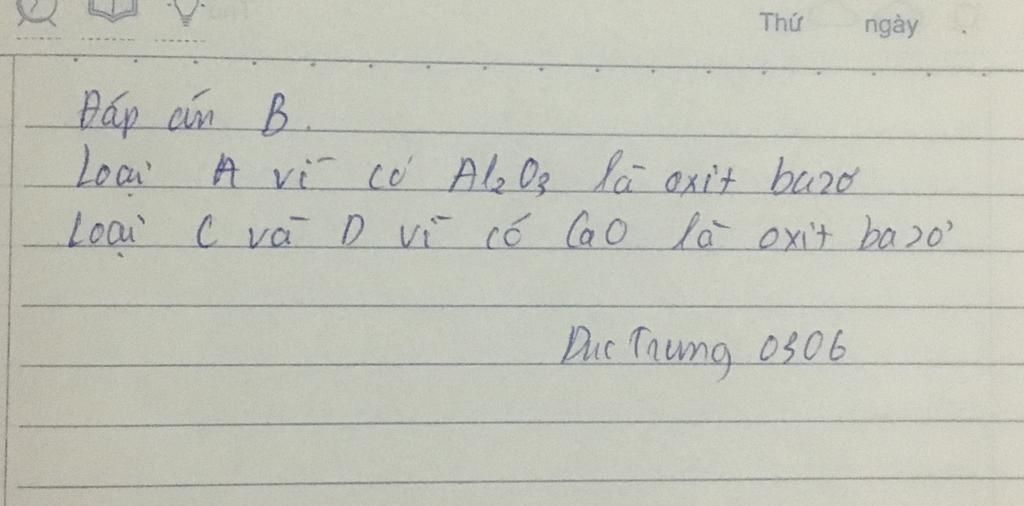 Thứ ngày
Đáp án B.
Loại A vì có Al₂O₃ là oxit bazơ
Loại C và D vì có CaO là oxit bazơ
Duc Trung 0306